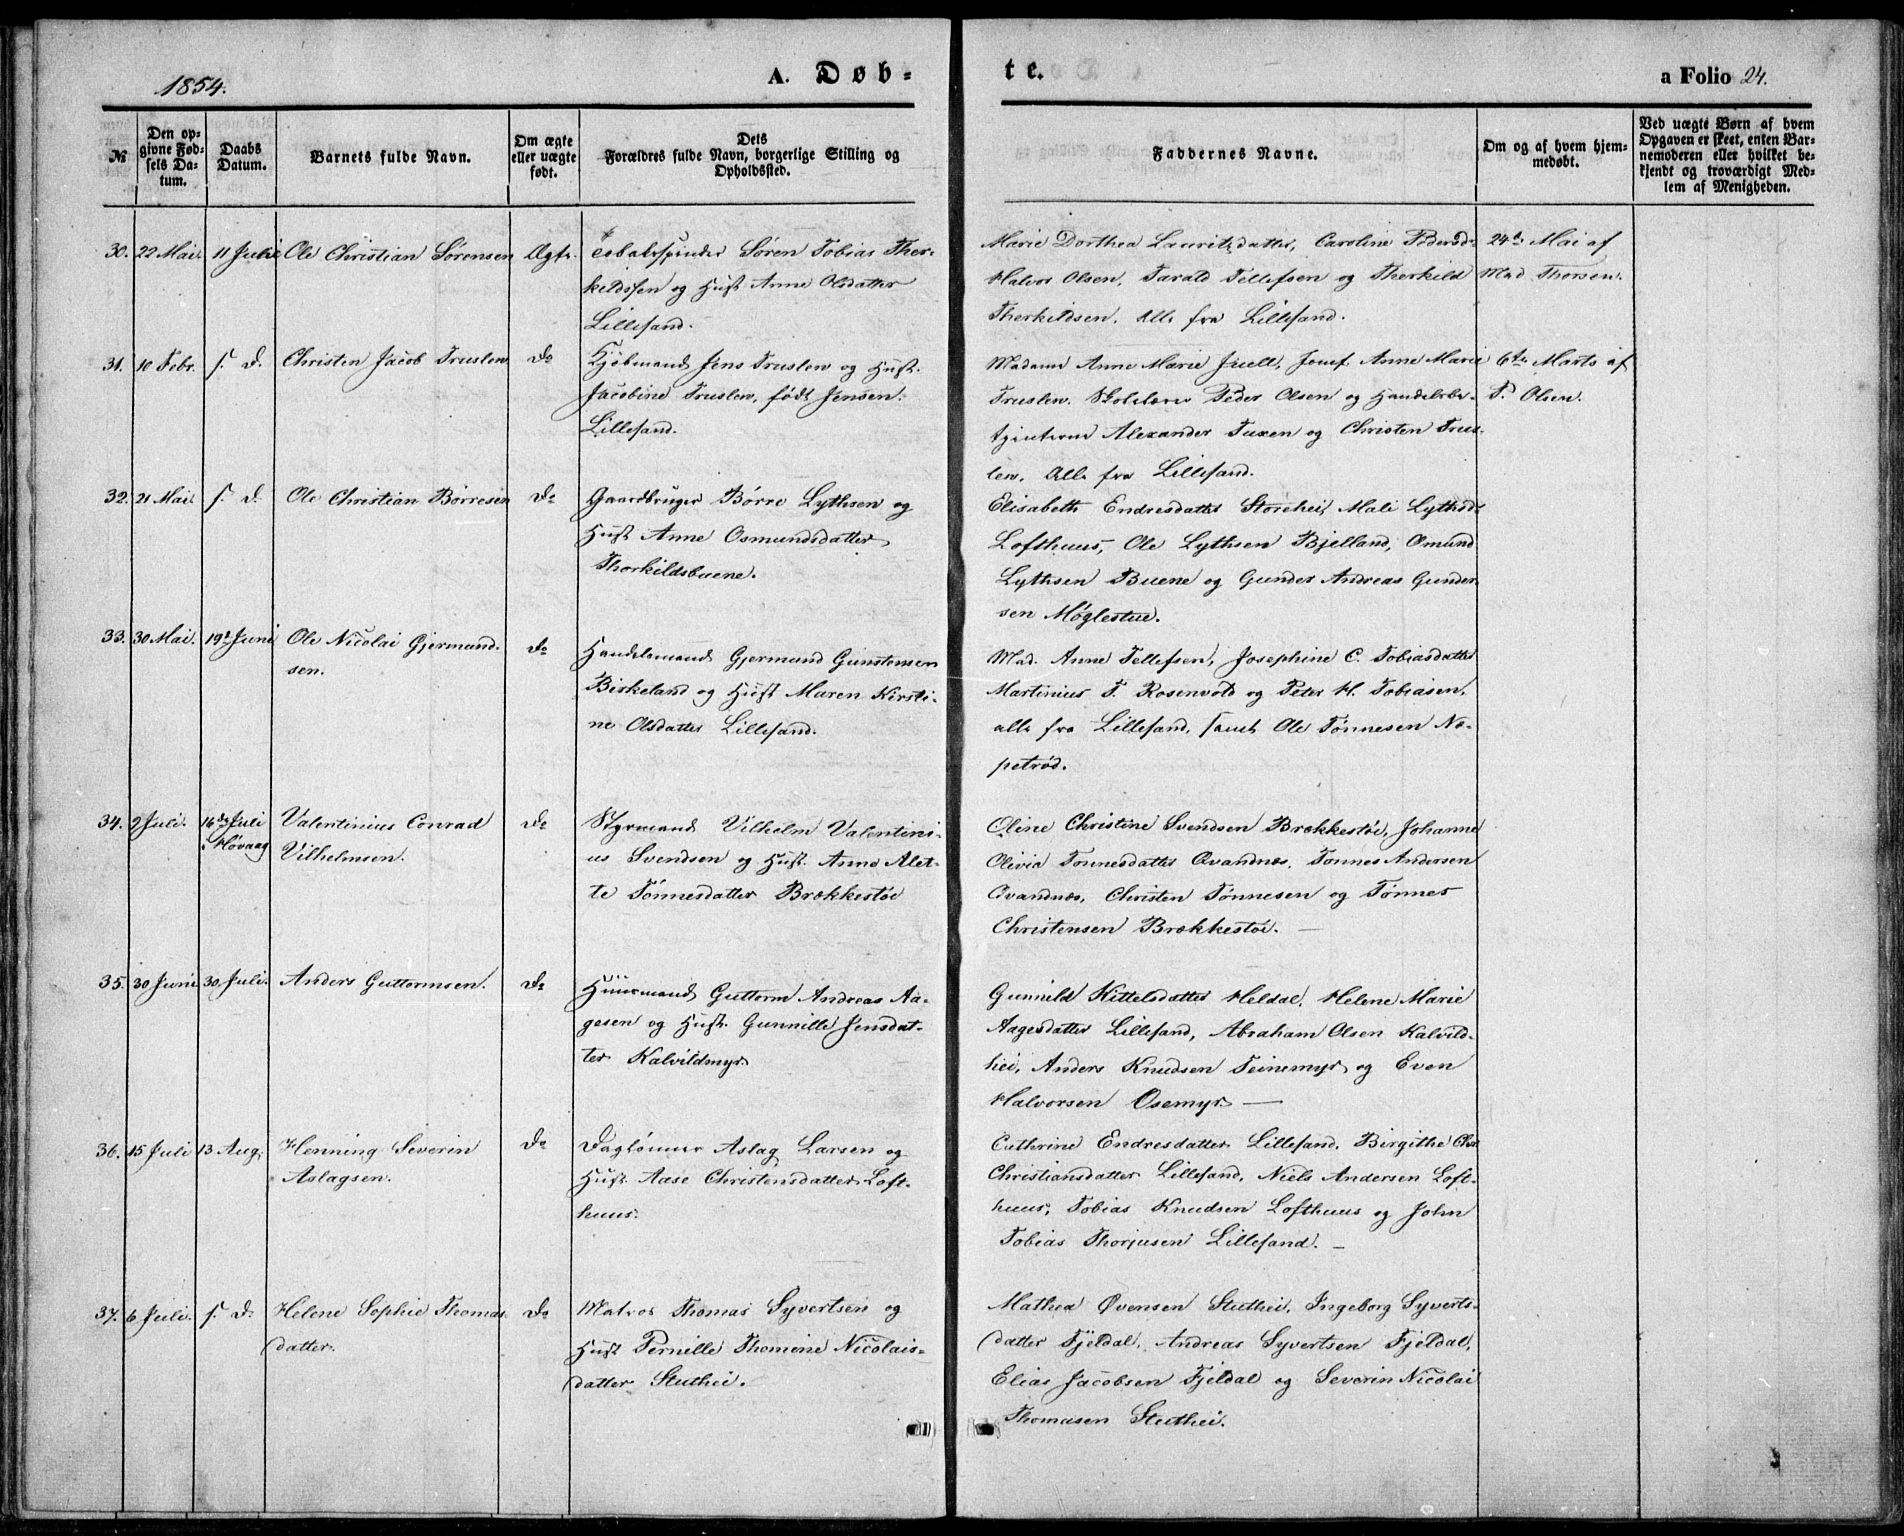 1854.
A. Døb-
te.
a Folio 24.
№
Den op-
givne Fød-
sels Da-
tum.
Daabs
Datum.
Barnets fulde Navn.
Om ægte
eller uægte
født.
Dets
Forældres fulde Navn, borgerlige Stilling og
Opholdssted.
Faddernes Navne.
Om og af hvem hjem-
medøbt.
Ved uægte Børn af hvem
Opgaven er skeet, enten Bar-
nemoderen eller hvilket be-
kjendt og troværdigt Med-
lem af Menigheden.
30. 22 Mai. 11 Juli Ole Christian Sørensen Ægte.
Tobakspinder Søren Tobias Ther-
kildsen og Hust Anne Olsdatter
Lillesand.
Marie Dorthea Lauritzdatter, Caroline Pedersd.
Halvor Olsen, Tarald Tellefsen og Therkild
Therkildsen. Alle fra Lillesand.
24de Mai af
Mad Thorsen.
31. 10 Febr. s. D. Christen Jacob Truslew Do
Kjøbmand Jens Truslew og Hust.
Jacobine Truslew, født Jensen.
Lillesand.
Madame Anne Marie Juell, Jomf. Anne Marie
Truslew. Skolelærer Peder Olsen og Handelsbe-
tjenterne Alexander Tuxen og Christen Trus-
lew. Alle fra Lillesand.
6te Marts af
P. Olsen.
32. 21 Mai. s. D. Ole Christian Børresen Do
Gaardbruger Børre Lythsen og
Hust Anne Osmundsdatter
Thorkildsbuene.
Elisabeth Endresdatter Storehei, Mali Lythsd.
Lofthuus, Ole Lythsen Bjelland, Omund
Lythsen Buene og Gunder Andreas Gunder-
sen Møglestue.
33. 30 Mai. 19de Juni Ole Nicolai Gjermund-
sen.
Do
Handelsmand Gjermund Gunstensen
Birkeland og Hust Maren Kirsti-
ne Olsdatter Lillesand.
Mad. Anne Tellefsen, Josephine C. Tobiasdatter
Martinius T. Rosenvold og Peter H. Tobiasen,
alle fra Lillesand, samt Ole Tønnesen Næ-
petrød.
34. 2 Juli. 16de Juli
i Høvaag
Valentinius Conrad
Vilhelmsen.
Do
Styrmand Vilhelm Valentini-
us Svendsen og Hust. Anne Alet-
te Tønnesdatter Brækkestøe
Oline Christine Svendsen Brækkestøe, Johanne
Olivia Tønnesdatter Qvandnæs, Tønnes Andersen
Qvandnæs, Christen Tønnesen og Tønnes
Christensen Brækkestøe.
35. 30 Juni 30 Juli. Anders Guttormsen. Do
Huusmand Guttorm Andreas Aa-
gesen og Hust. Gunnille Jensdat-
ter Kalvildmyr.
Gunnild Kittelsdatter Heldal, Helene Marie
Aagesdatter Lillesand, Abraham Olsen Kalvild-
hei, Anders Knudsen Teinemyr og Even
Halvorsen Osemyr.
36. 15 Juli 13 Aug. Henning Severin
Aslagsen.
Do
Dagløner Aslag Larsen og
Hust. Aase Christensdatter Loft-
huus.
Cathrine Endresdatter Lillesand, Birgithe
Christiansdatter Lillesand, Niels Andersen Loft-
huus, Tobias Knudsen Lofthuus og John
Tobias Thorjusen Lillesand.
37. 6 Juli. s. D. Helene Sophie Thomas-
datter.
Do
Matros Thomas Syvertsen og
Hust Pernille Thomine Nicolais-
datter Stuthei.
Mathea Øvensen Stuthei, Ingeborg Syverts-
datter Fjeldal, Andreas Syvertsen Fjeldal,
Elias Jacobsen Fjeldal og Severin Nicolai
Thomasen Stuthei.